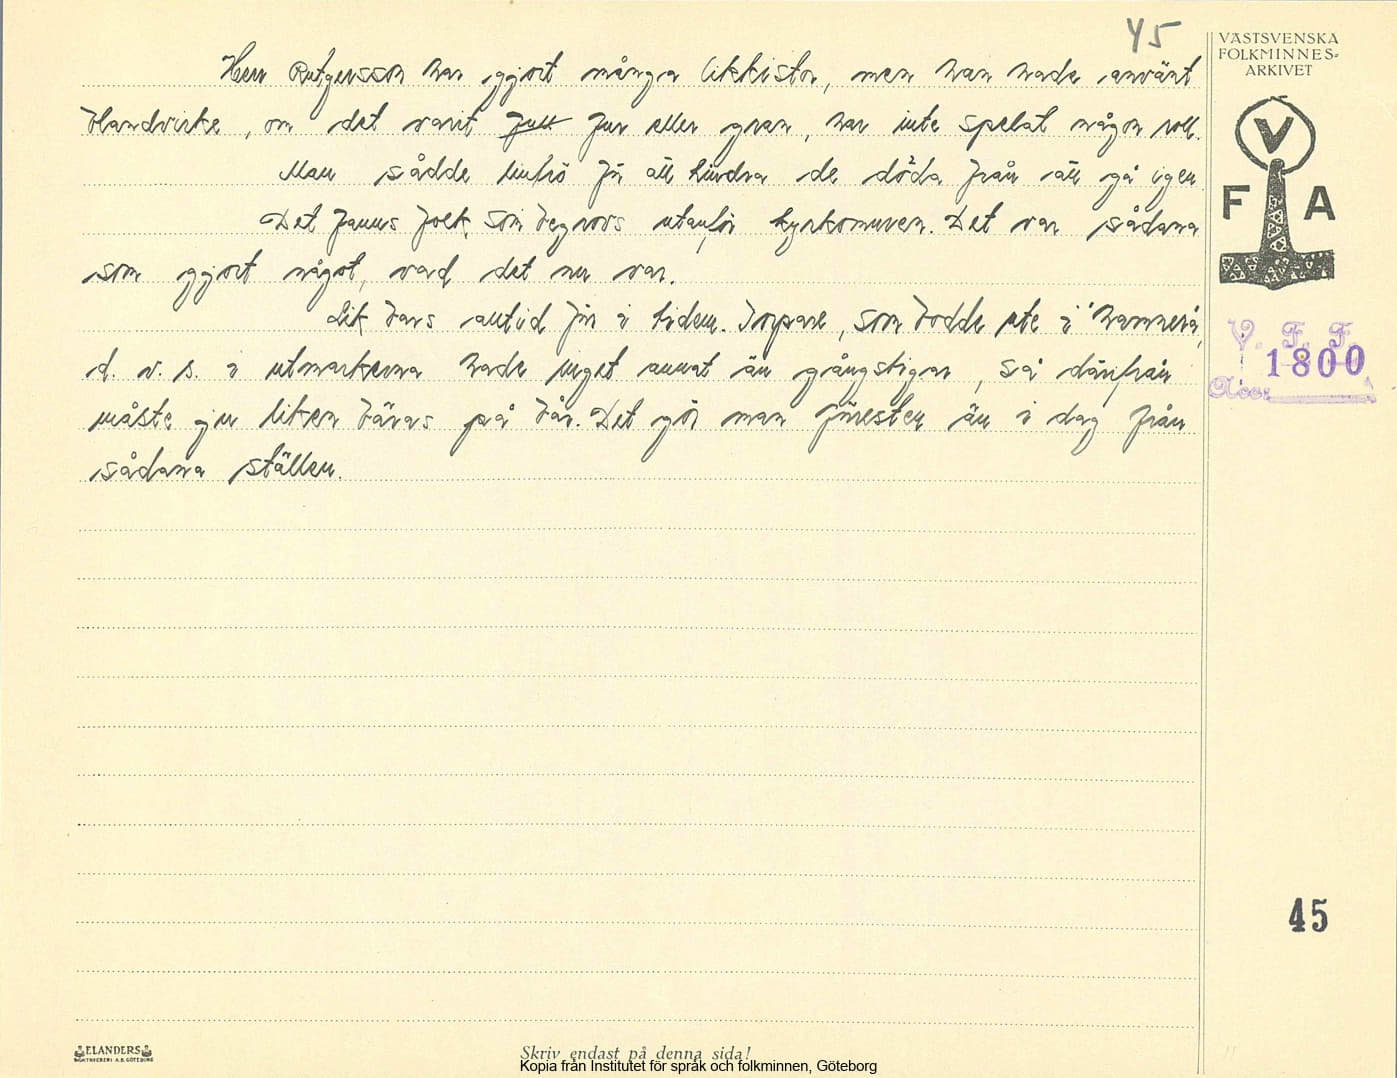 45
VÄSTSVENSKA
FOLKMINNES-
ARKIVET
V
F A
V. F. F.
1800
Acc:
Herr Rutgersson har gjort många likkistor, men han hade använt
blandvirke, om det varit furu fur eller gran, har inte spelat någon roll.
Man sådde linfrö för att hindra de döda från att gå igen
Det fanns folk som begrovs utanför kyrkomuren. Det var sådana
som gjort något, vad det nu var.
Lik bars alltid förr i tiden. Torpare, som bodde ute i
d. v. s. i utmarkerna hade inget annat än gångstigar, så därifrån
måste ju liken bäras på bår. Det gör man förresten än i dag från
sådana ställen.
45
ELANDERS
BOKTRYCKERI A.B. GÖTEBORG
Skriv endast på denna sida!
Kopia från Institutet för språk och folkminnen, Göteborg